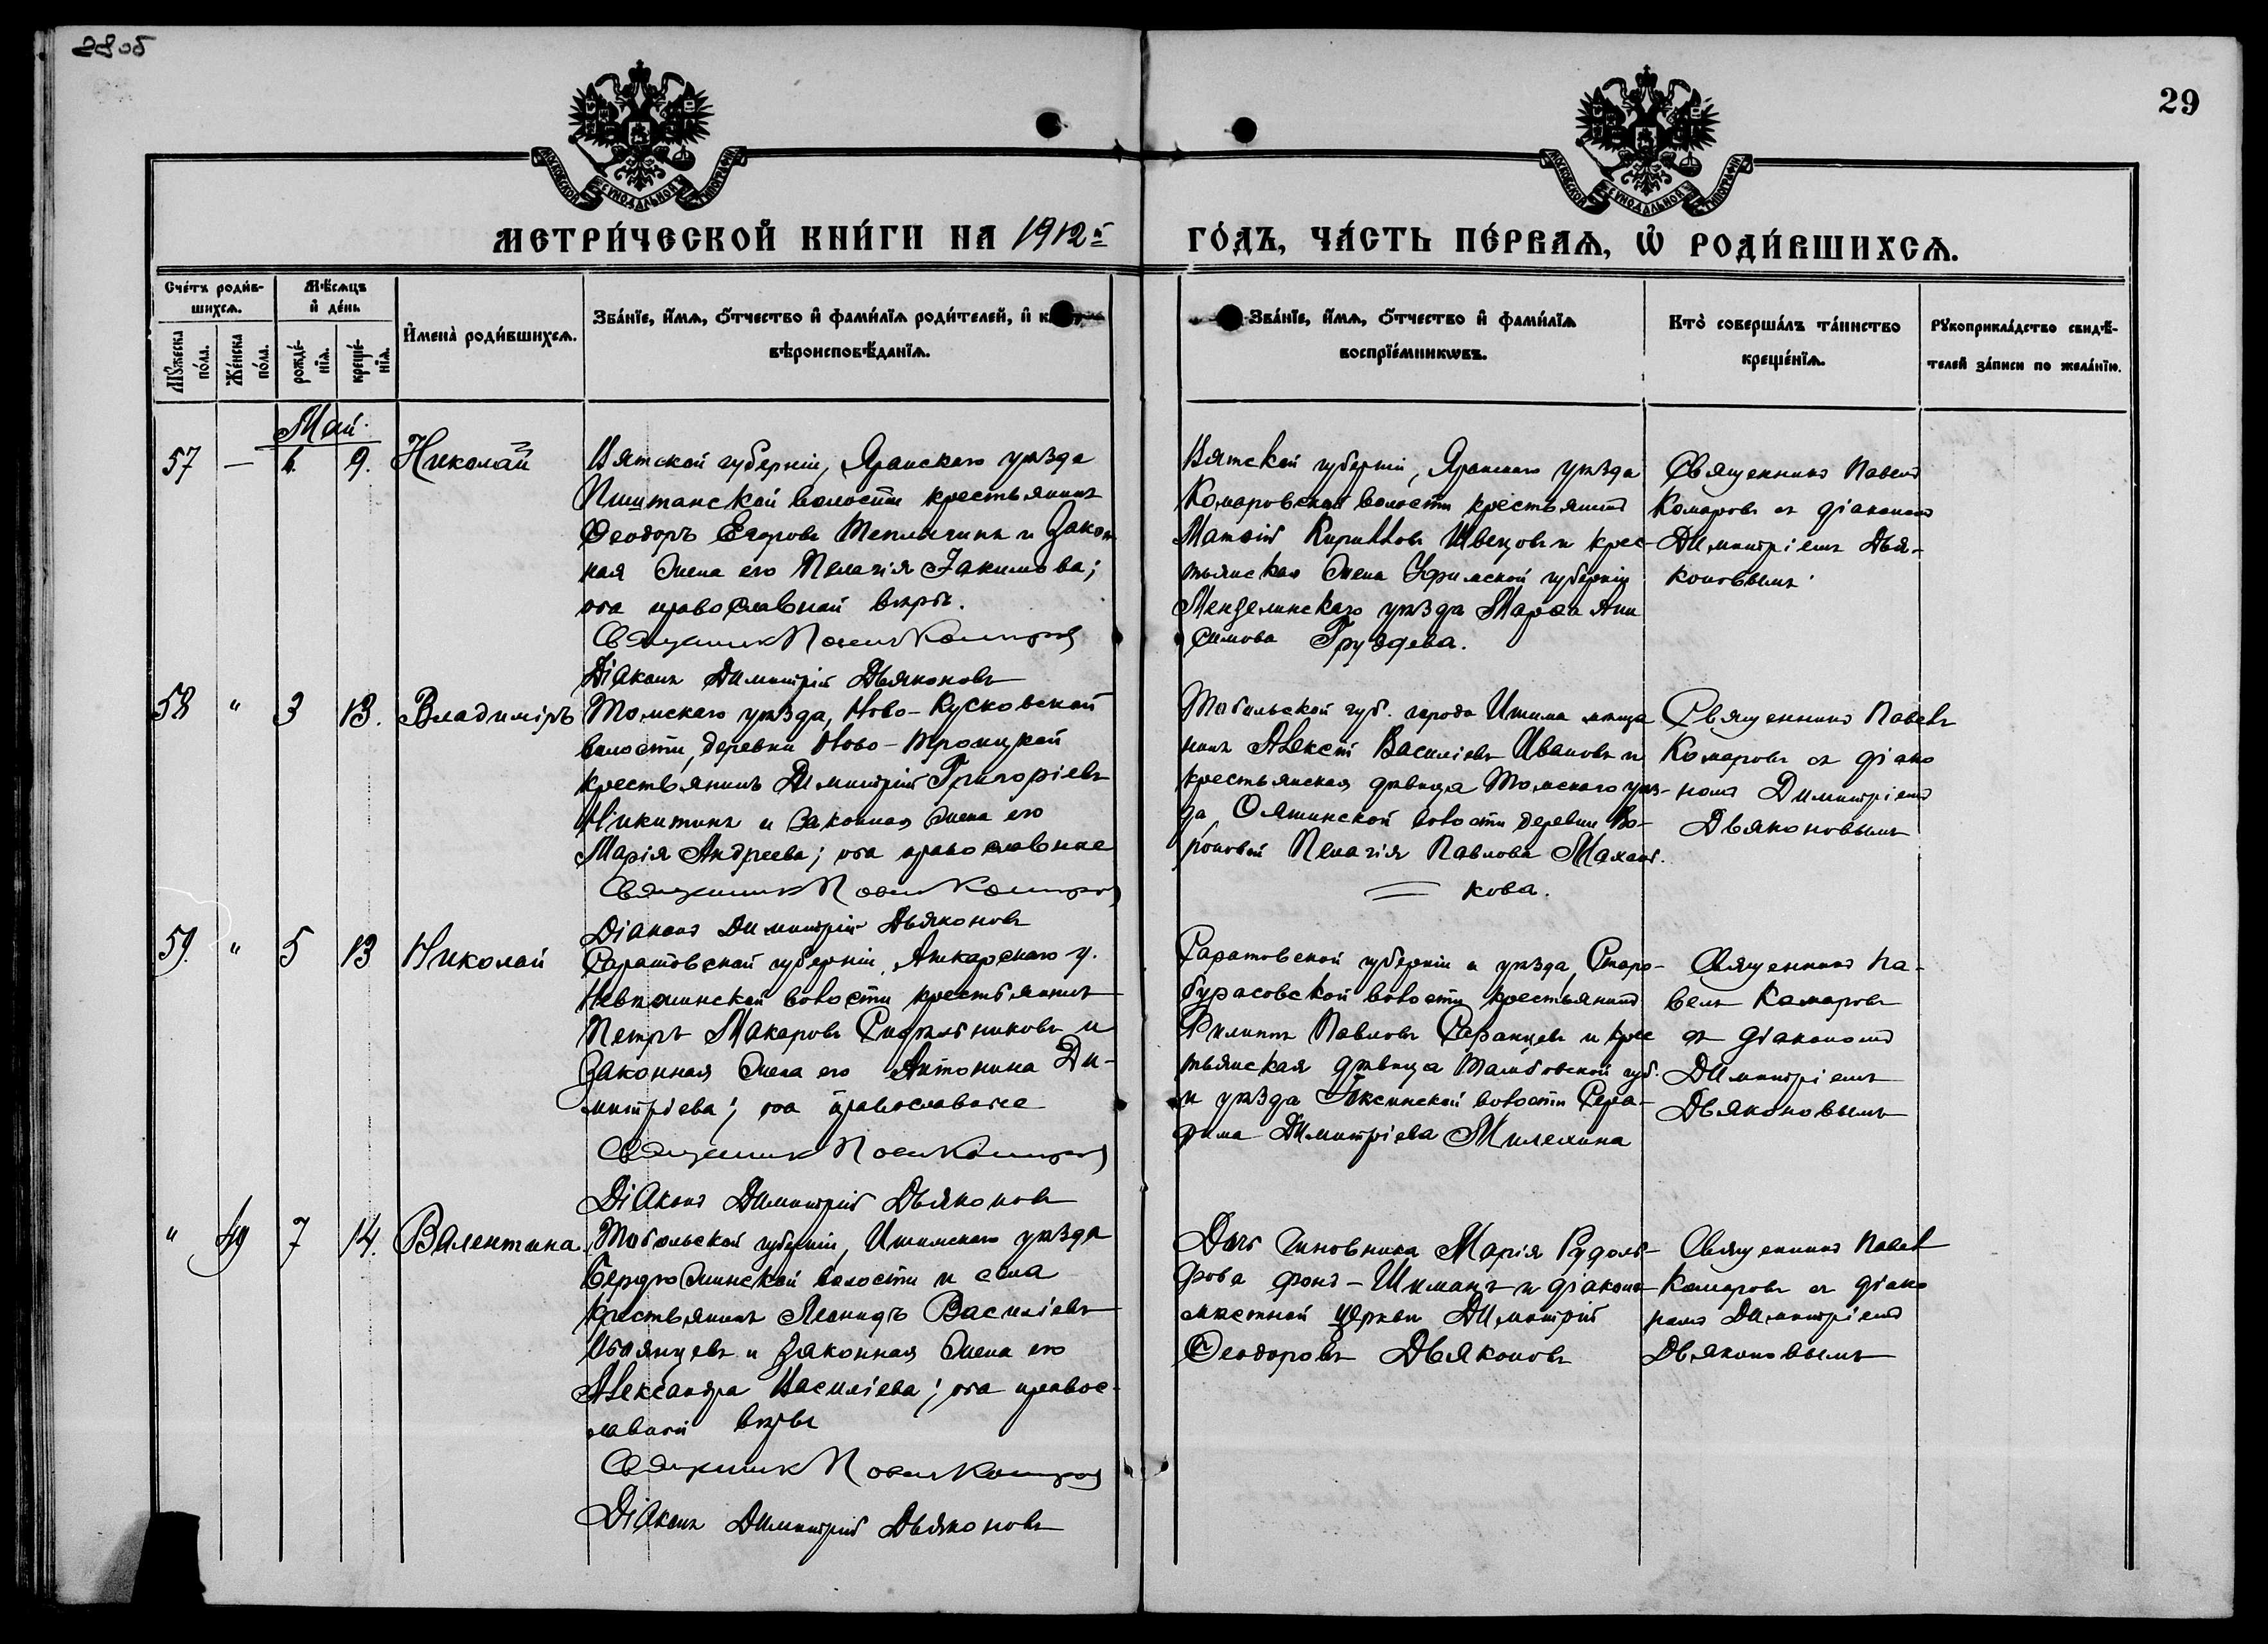 28об
29
МОСКОВСКОЙ СѴНОДАЛЬНОЙ ТИПОГРАФІИ
МОСКОВСКОЙ СѴНОДАЛЬНОЙ ТИПОГРАФІИ
МЕТРИ́ЧЕСКОЙ КНИ́ГИ НА 1912й
ГО́ДЪ, ЧА́СТЬ ПЕ́РВАѦ, Ѡ҆ РОДИ́ВШИХСѦ.
Сче́тъ роди́в-
шихсѧ.
Мѣ́сѧцъ
и҆ де́нь
Мꙋ́жеска
по́ла.
Же́нска
по́ла.
рожде́-
нїѧ.
креще́-
нїѧ.
И҆мена̀ роди́вшихсѧ.
Зва́нїе, и҆́мѧ, ѻ҆́тчество и҆ фами́лїѧ роди́телей, и҆
вѣроисповѣ́данїѧ.
Зва́нїе, и҆́мѧ, ѻ҆́тчество и҆ фами́лїѧ
воспрїе́мникѡвъ.
Кто̀ соверша́лъ та́инство
креще́нїѧ.
Рꙋкоприкла́дство свидѣ́-
телей за́писи по жела́нїю.
Май
57 — 9. Николай
Вятской губерніи, Яранскаго уѣзда
Пиштанской волости крестьянинъ
Ѳеодоръ Егоровъ Теплыгинъ и закон
ная жена его Пелагія Іакимова;
оба православной вѣры.
Священникъ Павелъ Комаровъ
Діаконъ Димитрій Дьяконовъ
Вятской губерніи, Яранскаго уѣзда
Комаровской волости крестьянинъ
Матѳій Кирилловъ Швецовъ и крес-
тьянская жена Уфимской губерніи
Мензелинскаго уѣзда Марѳа Ани
симова Груздева.
Священникъ Павелъ
Комаровъ съ діакономъ
Димитріемъ Дья-
коновымъ
58 " 3 13. Владиміръ
Томскаго уѣзда, Ново-Кусковской
волости, деревни Ново-Троицкой
крестьянинъ Димитрій Григоріевъ
Никитинъ и законная жена его
Марія Андреева; оба православные
Священникъ Павелъ Комаровъ
Діаконъ Димитрій Дьяконовъ
Тобольской губ. города Ишима мѣща
нинъ Алексѣй Василіевъ Ивановъ и
крестьянская дѣвица Томскаго уѣз-
да, волости деревни Во-
роновой Пелагія Павлова
кова.
Священникъ Павелъ
Комаровъ съ діако
номъ Димитріемъ
Дьяконовымъ
59. " 5 13 Николай
Саратовской губерніи, Аткарскаго у.
волости крестьянинъ
Петръ Макаровъ и
законная жена его Антонина Ди-
митріева; оба православные
Священникъ Павелъ Комаровъ
Діаконъ Димитрій Дьяконовъ
Саратовской губерніи и уѣзда, Старо-
бурасовской волости крестьянинъ
Филиппъ Павловъ и крес
тьянская дѣвица Тамбовской губ.
и уѣзда волости Сера-
фима Димитріева Милехина
Священникъ Па-
велъ Комаровъ
съ діакономъ
Димитріемъ
Дьяконовымъ
" 49 7 14. Валентина
Тобольской губерніи, Ишимскаго уѣзда
Бердюжинской волости и села
крестьянинъ Леонидъ Василіевъ
и законная жена его
Александра Василіева; оба правос-
лавной вѣры
Священникъ Павелъ Комаровъ
Діаконъ Димитрій Дьяконовъ
Дочь чиновника Марія Рудоль-
фова фонъ-Шиманъ и діаконъ
мѣстной церкви Димитрій
Ѳеодоровъ Дьяконовъ
Священникъ Павелъ
Комаровъ съ діако
номъ Димитріемъ
Дьяконовымъ